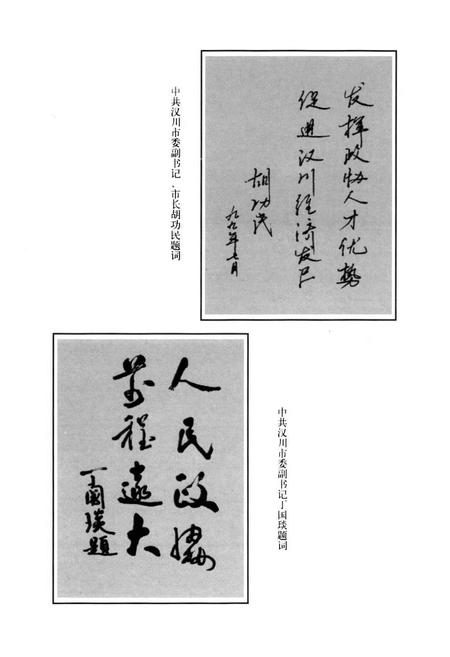 发挥政协人才优势
促进汉川经济发展
胡功民
九九年七月
中共汉川市委副书记、市长胡功民题词
人民政协
前程远大
丁国琰题
中共汉川市委副书记丁国琰题词